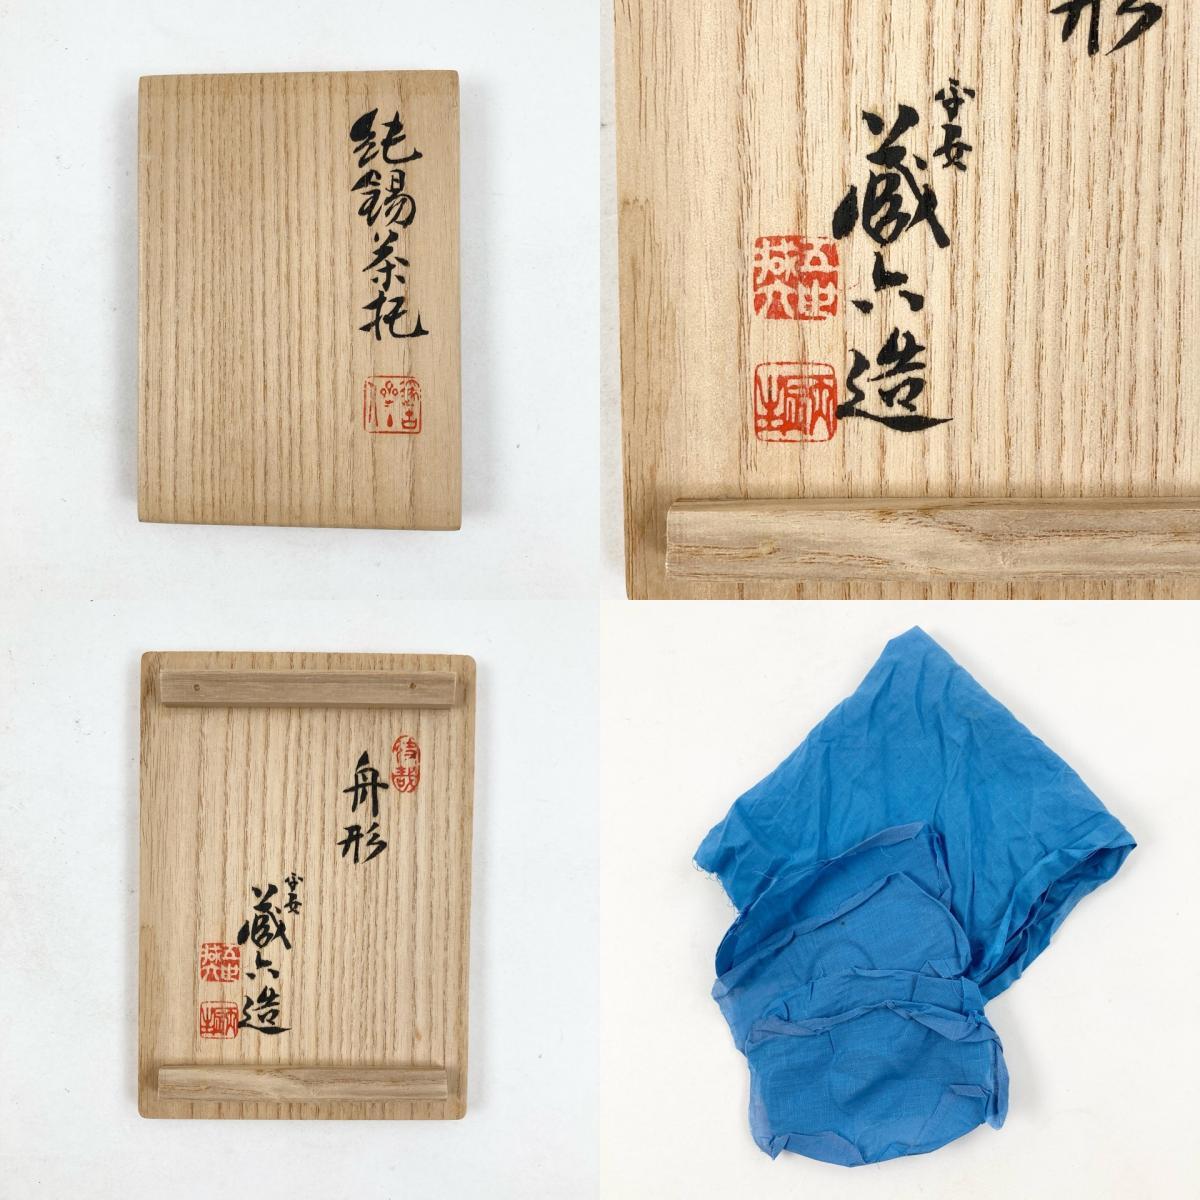 純錫茶托
形
平安
蔵六造
舟形
平安
蔵六造